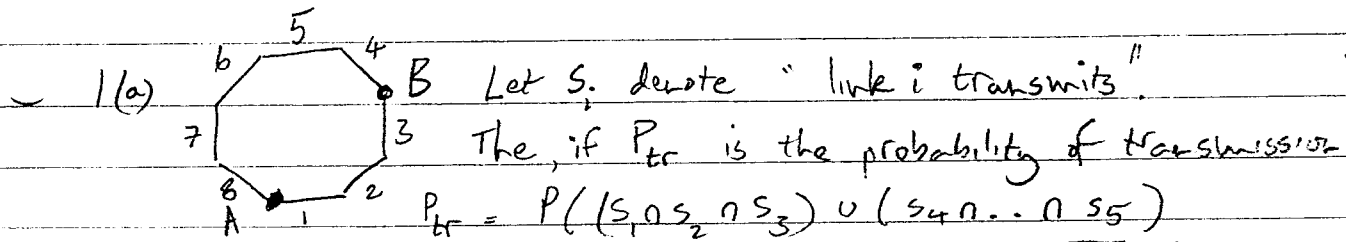 5
6 4
1(a) B Let Sᵢ denote "link i transmits".
7 3 The, if P_tr is the probability of transmission
8 2
A 1 P_tr = P((S₁∩S₂∩S₃) ∪ (S₄∩..∩S₅)